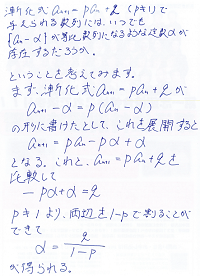 漸化式 aₙ₊₁ = paₙ + q (p≠1) で
与えられる数列には、いつでも
{aₙ - α} が等比数列になるような定数αが
存在するだろうか。
ということを考えてみます。
まず、漸化式 aₙ₊₁ = paₙ + q が
aₙ₊₁ - α = p(aₙ - α)
の形に書けたとして、これを展開すると
aₙ₊₁ = paₙ - pα + α
となる。これと、aₙ₊₁ = paₙ + q を
比較して
- pα + α = q
p≠1 より、両辺を 1-p で割ることが
できて
α = q / (1-p)
が得られる。